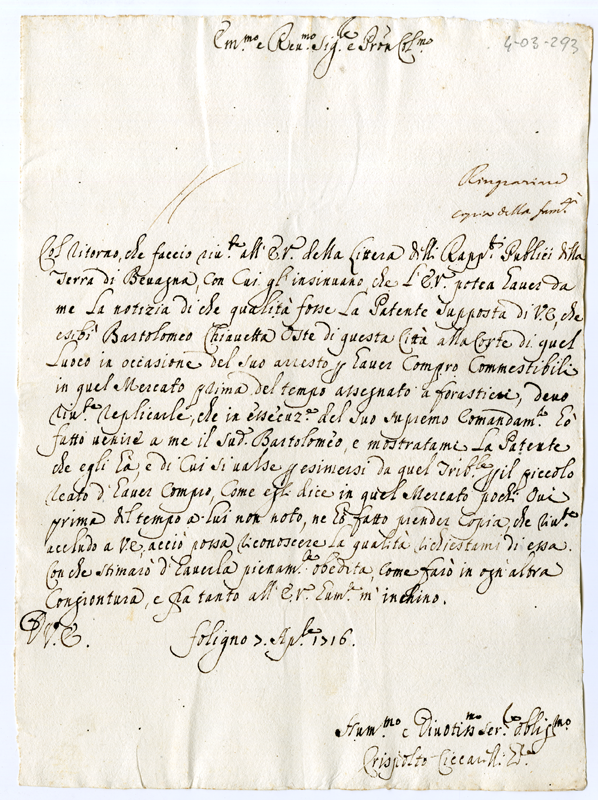 Em.mo e Reu.mo Sig.re e Pron Col.mo
4-03-293
Ringraziare
copia della fam.a
Col ritorno, che faccio riu.te all' E.V. della Littera delli Rapp.ti Publici della
Terra di Beuagna, con Cui gl' insinuano, che L' E.V. potea hauer da
me La notizia di che qualità fosse La Patente Supposta di V.E., che
esibì Bartolomeo Chiauetta Oste di questa Città alla Corte di quel
Luoco in occasione del Suo arresto p hauer Compro Commestibili
in quel Mercato prima del tempo assegnato a forastieri, deuo
riu.te replicarle, che in essecuz.ne del Suo Supremo Comandam.to hò
fatto uenire a me il Sud.o Bartolomeo, e mostratami La Patente
che egli hà, e di Cui si ualse p esimersi da quel Trib.le p il piccolo
reato d' hauer Compro, Come egli dice in quel Mercato pochi Oui
prima del tempo a lui non noto, ne hò fatto prender Copia, che riu.te
accludo a V.E., acciò possa riconoscere La qualità richiestami di essa.
Con che stimarò d' hauerla pienam.te obedita, come farò in ogn' altra
Congiontura, e fra tanto all' E.V. hum.te m' inchino.
D V.E.
Foligno 7. Ap.le 1716.
Hum.mo e Diuotiss.mo Ser.re oblig.mo
Crispolto Ciccarelli